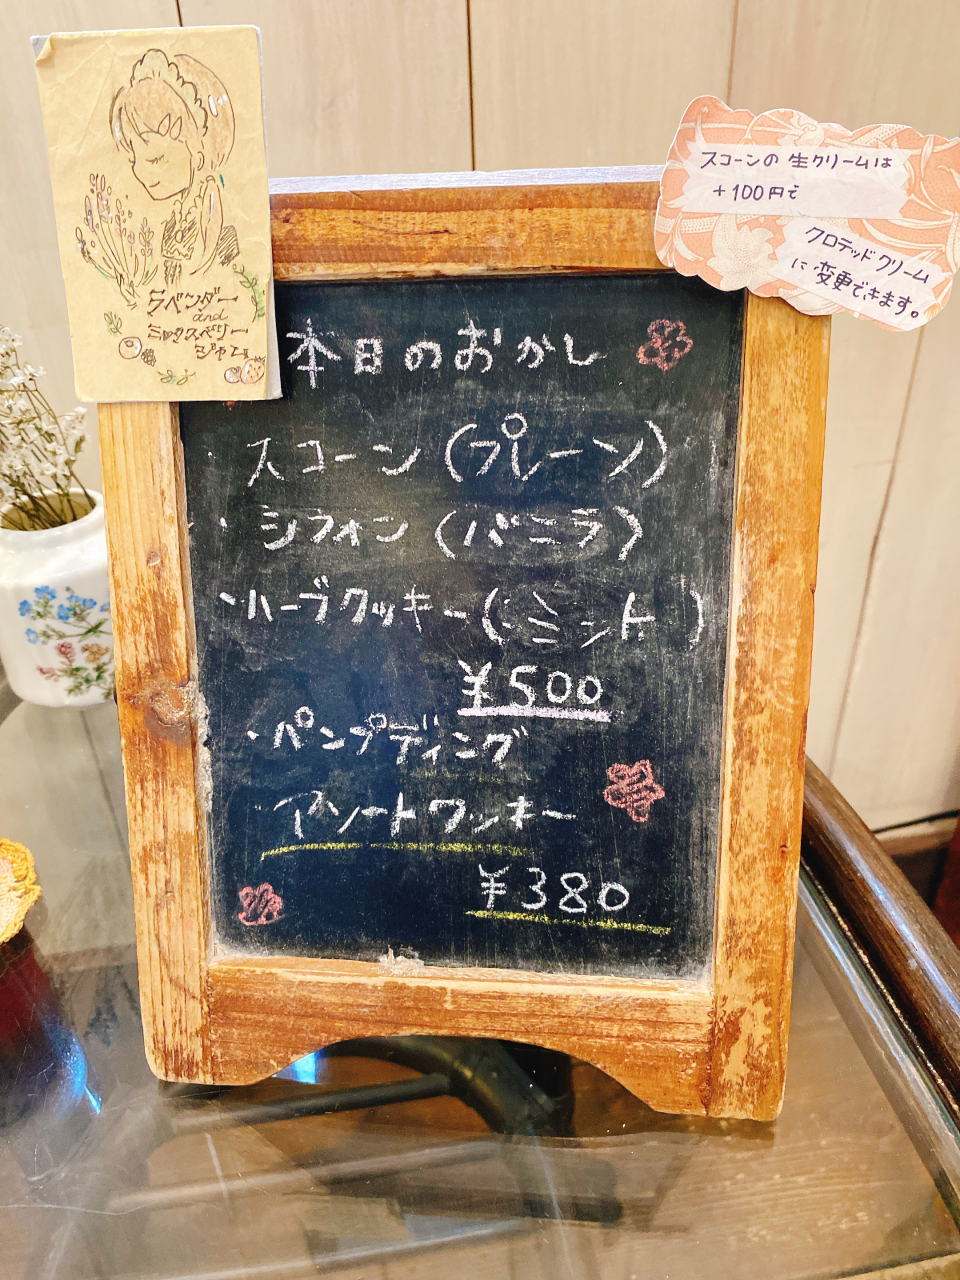 ラベンダー
and
ミックスベリー
ジャム
スコーンの生クリームは
+100円で
クロテッドクリーム
に変更できます。
本日のおかし
・スコーン(プレーン)
・シフォン(バニラ)
・ハーブクッキー(ミント)
¥500
・パンプディング
・アソートクッキー
¥380